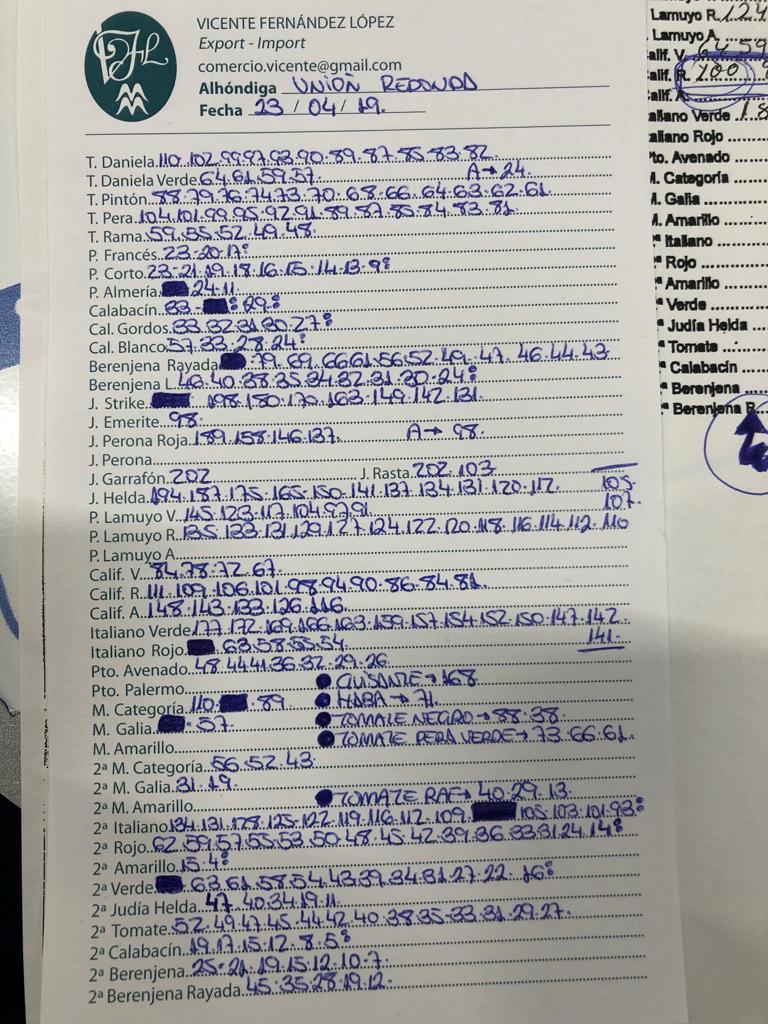 VICENTE FERNÁNDEZ LÓPEZ
Export - Import
comercio.vicente@gmail.com
Alhóndiga UNIÓN REDONDA
Fecha 23 / 04 / 19.
T. Daniela 110. 102. 99. 97. 93. 90. 89. 87. 85. 83. 82.
T. Daniela Verde 64. 61. 59. 57. A→ 24.
T. Pintón 88. 79. 76. 74. 73. 70. 68. 66. 64. 63. 62. 61.
T. Pera 104. 101. 99. 95. 92. 91. 89. 87. 85. 84. 83. 81.
T. Rama 59. 55. 52. 49. 48.
P. Francés 23. 20. 17:
P. Corto 23. 21. 19. 18. 16. 15. 14. 13. 9:
P. Almería 24. 11.
Calabacín 33. 29:
Cal. Gordos 33. 32. 31. 30. 27:
Cal. Blanco 57. 33. 28. 24:
Berenjena Rayada 79. 69. 66. 61. 56. 52. 49. 47. 46. 44. 43
Berenjena L. 43. 40. 38. 35. 34. 32. 31. 30. 24:
J. Strike 198. 180. 170. 163. 149. 142. 131.
J. Emerite 98.
J. Perona Roja 189. 158. 146. 137. A→ 98.
J. Perona
J. Garrafón 202 J. Rasta 202. 103
J. Helda 194. 187. 175. 165. 150. 141. 137. 134. 131. 120. 112. 105.
P. Lamuyo V. 145. 123. 117. 104. 97. 91. 107.
P. Lamuyo R. 135. 133. 131. 129. 127. 124. 122. 120. 118. 116. 114. 112. 110
P. Lamuyo A.
Calif. V. 84. 78. 72. 67.
Calif. R. 111. 109. 106. 101. 98. 94. 90. 86. 84. 81.
Calif. A. 148. 143. 133. 126. 116.
Italiano Verde 177. 172. 169. 166. 163. 159. 157. 154. 152. 150. 147. 142.
Italiano Rojo 63. 58. 55. 54. 141.
Pto. Avenado 48. 44. 41. 36. 32. 29. 26.
Pto. Palermo ● GUISANTE → 168
M. Categoría 110. 89 ● HABA → 71.
M. Galia 57. ● TOMATE NEGRO → 88. 38.
M. Amarillo ● TOMATE PERA VERDE → 73. 66. 61.
2ª M. Categoría 56. 52. 43.
2ª M. Galia 31. 19.
2ª M. Amarillo ● TOMATE RAF → 40. 29. 13.
2ª Italiano 134. 131. 128. 125. 122. 119. 116. 112. 109. 105. 103. 101. 93:
2ª Rojo 62. 59. 57. 55. 53. 50. 48. 45. 42. 39. 36. 33. 31. 24. 14:
2ª Amarillo 15. 4:
2ª Verde 63. 61. 58. 54. 43. 39. 34. 31. 27. 22. 16:
2ª Judía Helda 47. 40. 34. 19. 11.
2ª Tomate 52. 49. 47. 45. 44. 42. 40. 38. 35. 33. 31. 29. 27.
2ª Calabacín 19. 17. 15. 12. 8. 5:
2ª Berenjena 25. 21. 19. 15. 12. 10. 7.
2ª Berenjena Rayada 45. 35. 28. 19. 12.
Lamuyo R. 124
Lamuyo A.
alif. V. 64 59
alif. R. 100
alif. A.
aliano Verde 18
aliano Rojo
Pto. Avenado
M. Categoría
M. Galia
M. Amarillo
ª Italiano
ª Rojo
ª Amarillo
ª Verde
ª Judía Helda
ª Tomate
ª Calabacín
ª Berenjena
ª Berenjena R.